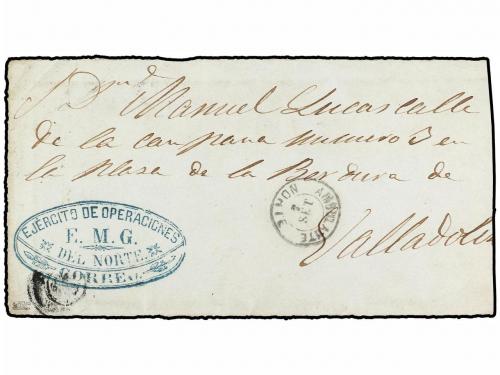 Manuel Lucas calle
de la campana numero 3 en
la plasa de la Berdura de
Valladolid
EJÉRCITO DE OPERACIONES
E. M. G.
DEL NORTE.
CORREO
AMBULANTE
SET
NORTE